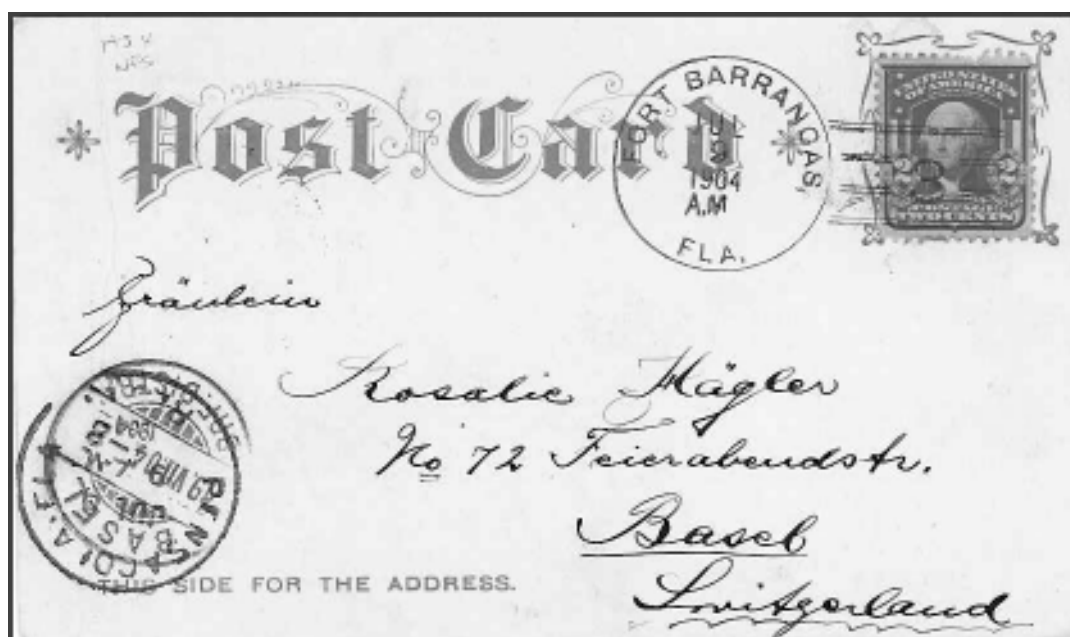 Post Card
FORT BARRANCAS,
JUL
9
1904
A.M
FLA.
UNITED STATES
OF AMERICA
2 2
TWO CENTS
Fräulein
Rosalie Hägler
No 72 Feierabendstr.
Basel
Switzerland
PENSACOLA, FLA.
BASEL
1904
THIS SIDE FOR THE ADDRESS.